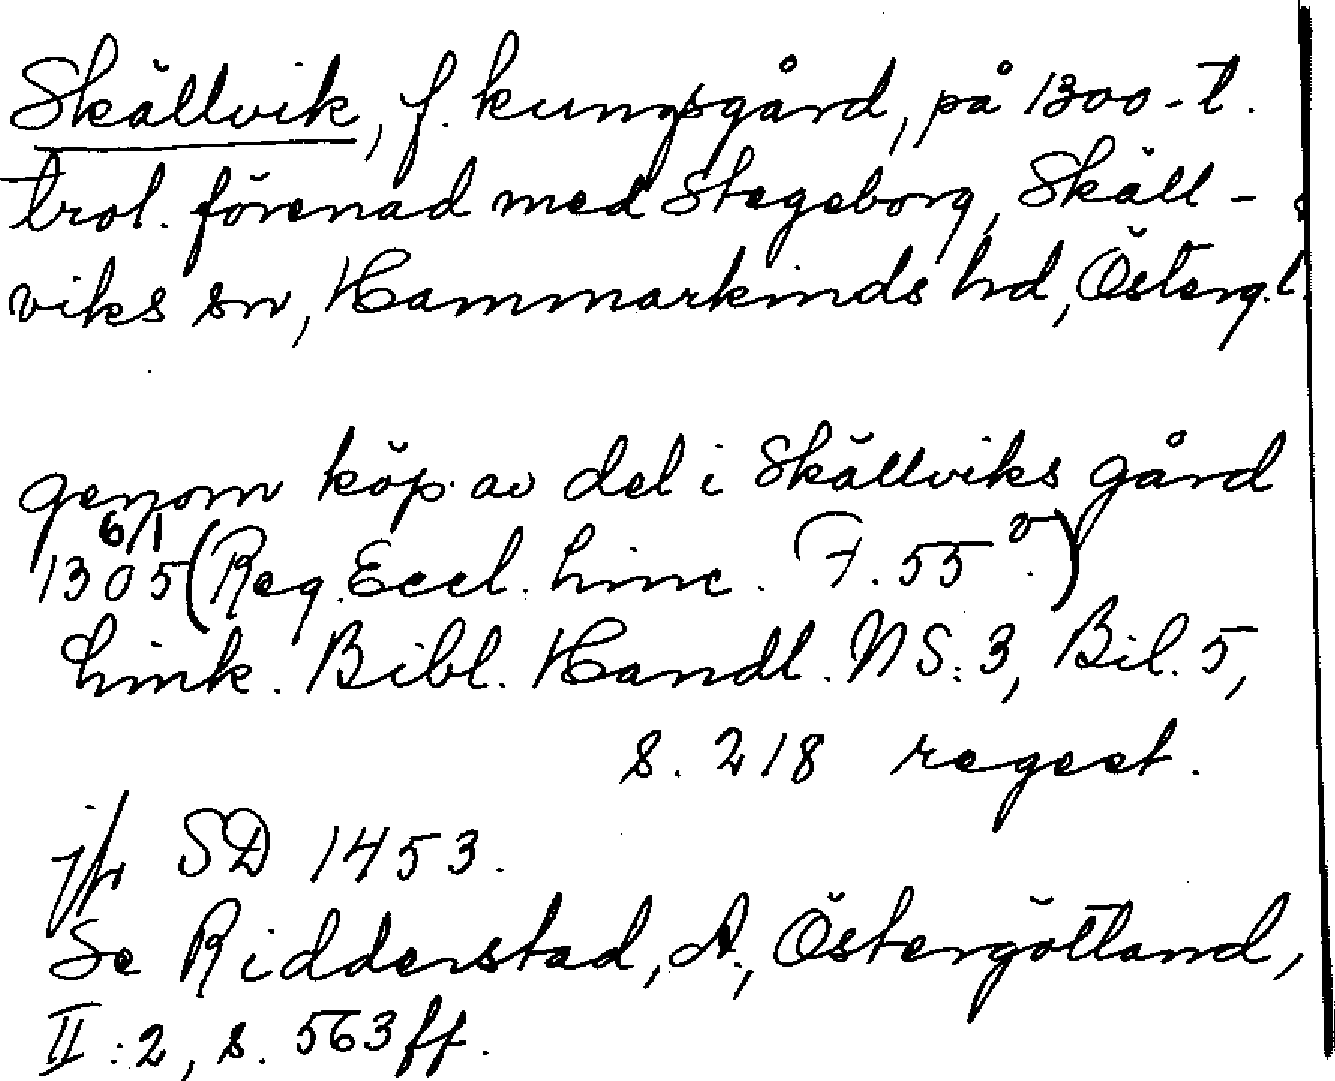 Skällvik, f. kungsgård, på 1300-t.
trol. förenad med Stegeborg, Skäll-
viks sn, Hammarkinds hd, Österg.l.
genom köp av del i Skällviks gård
6/1
1305 (Reg. Eccl. Linc. F. 55 v.)
Link. Bibl. Handl. NS: 3, Bil. 5,
s. 218 regest.
jfr SD 1453.
Se Ridderstad, A., Östergötland,
II:2, s. 563 ff.